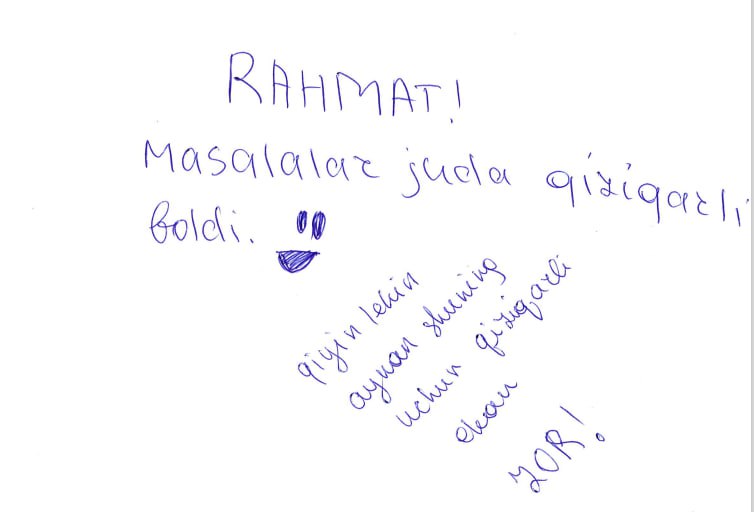 RAHMAT!
Masalalar juda qiziqarli
boldi.
qiyin lekin
aynan shuning
uchun qiziqarli
ekan
ZOR!